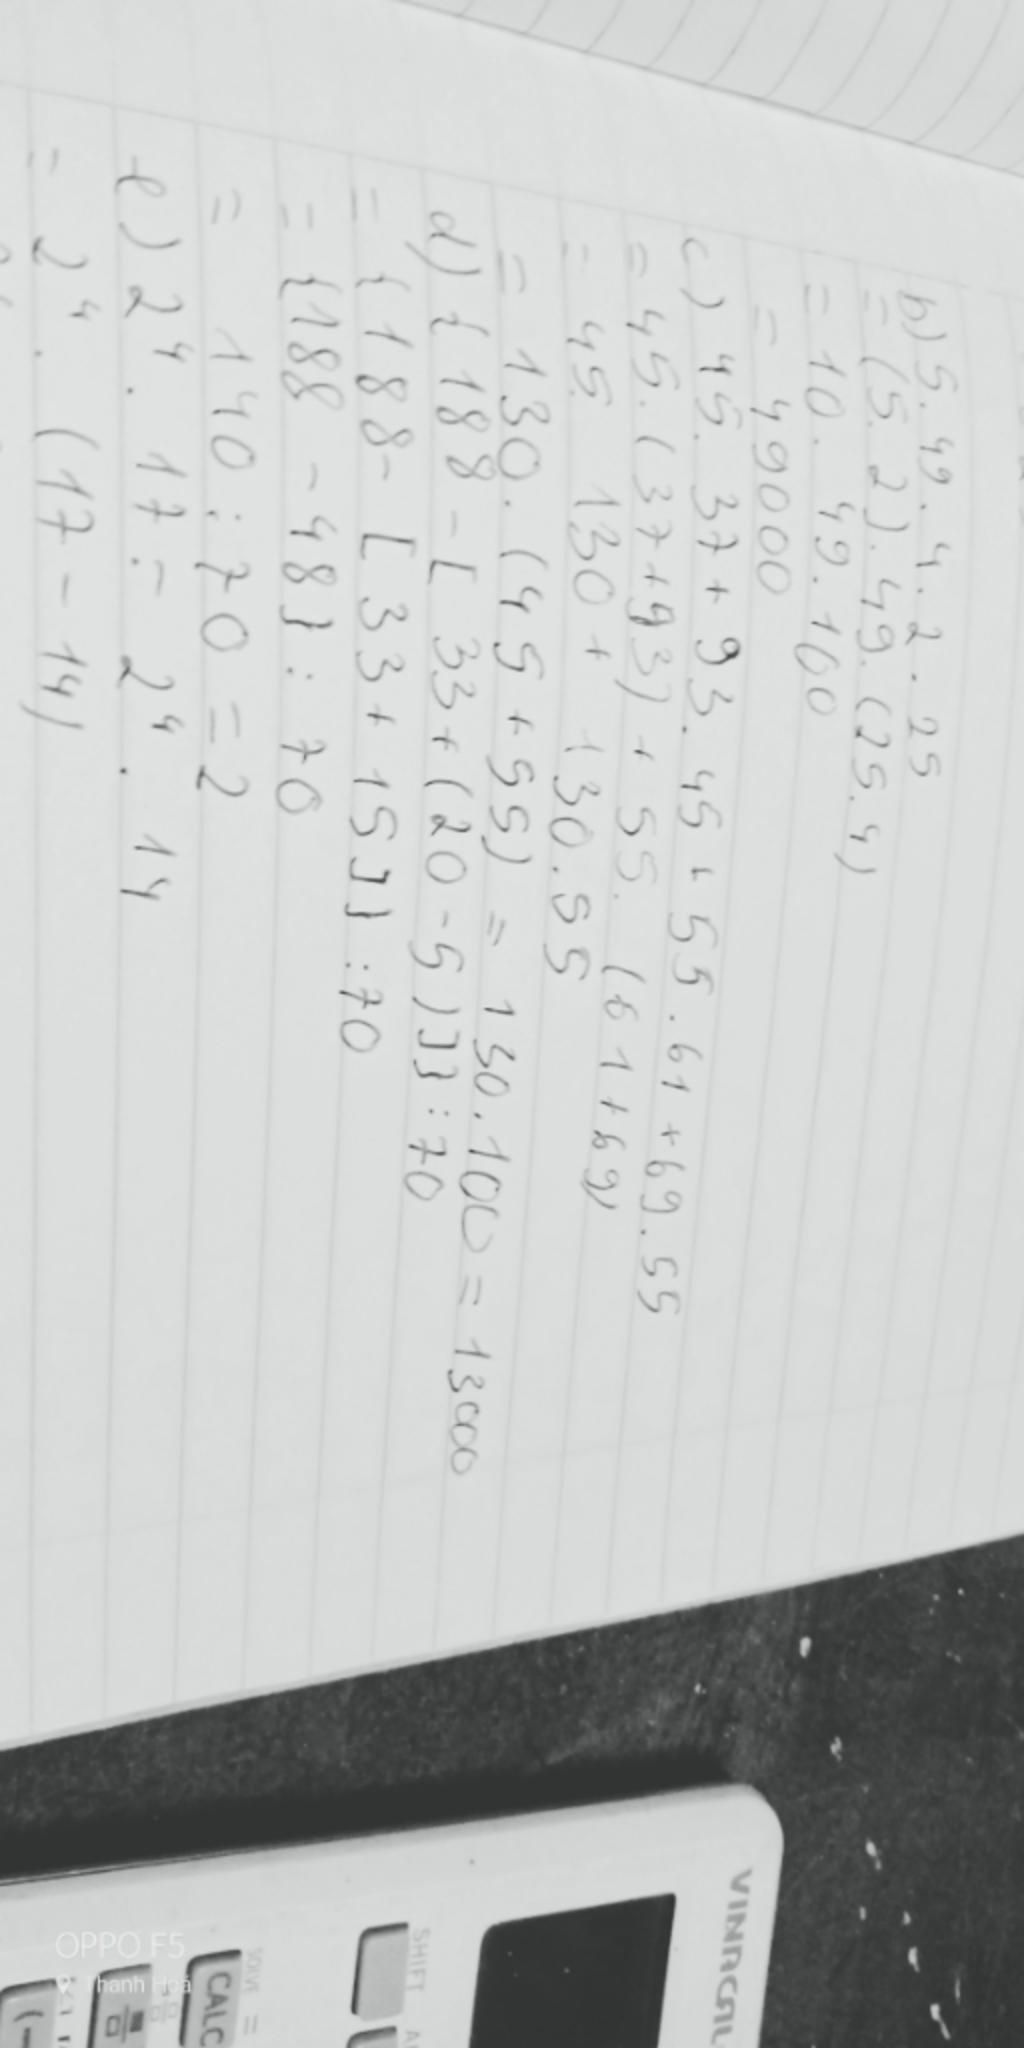 b) 5. 49. 4. 2. 25
= (5. 2). 49. (25. 4)
= 10. 49. 100
= 49000
c) 45. 37 + 93. 45 + 55. 61 + 69. 55
= 45. (37 + 93) + 55. (61 + 69)
= 45 130 + 130. 55
= 130. (45 + 55) = 130. 100 = 13000
d) { 188 - [ 33 + (20 - 5)]} : 70
= { 188 - [ 33 + 15]} : 70
= {188 - 48} : 70
= 140 : 70 = 2
e) 2⁴. 17 - 2⁴. 14
= 2⁴. (17 - 14)
VINACAL
SHIFT
SOLVE =
CALC
(-
OPPO F5
Thanh Hoá